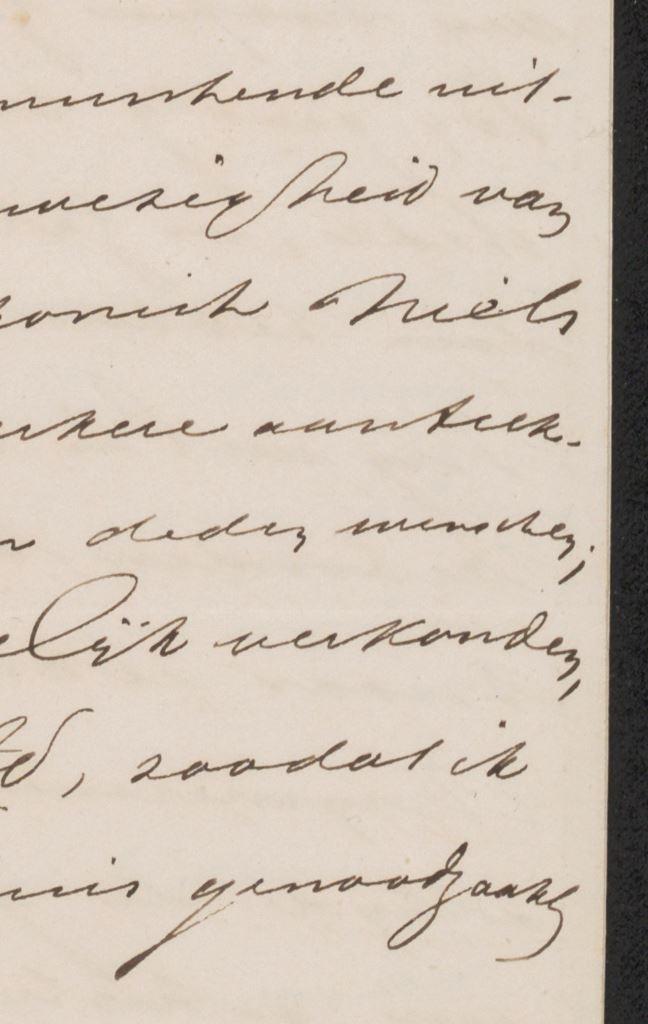 muntende uit-
wezigheid van
Niels
erkere aanteek-
n deden wenschen;
elijk verkonden,
, zoodat ik
genoodzaakt